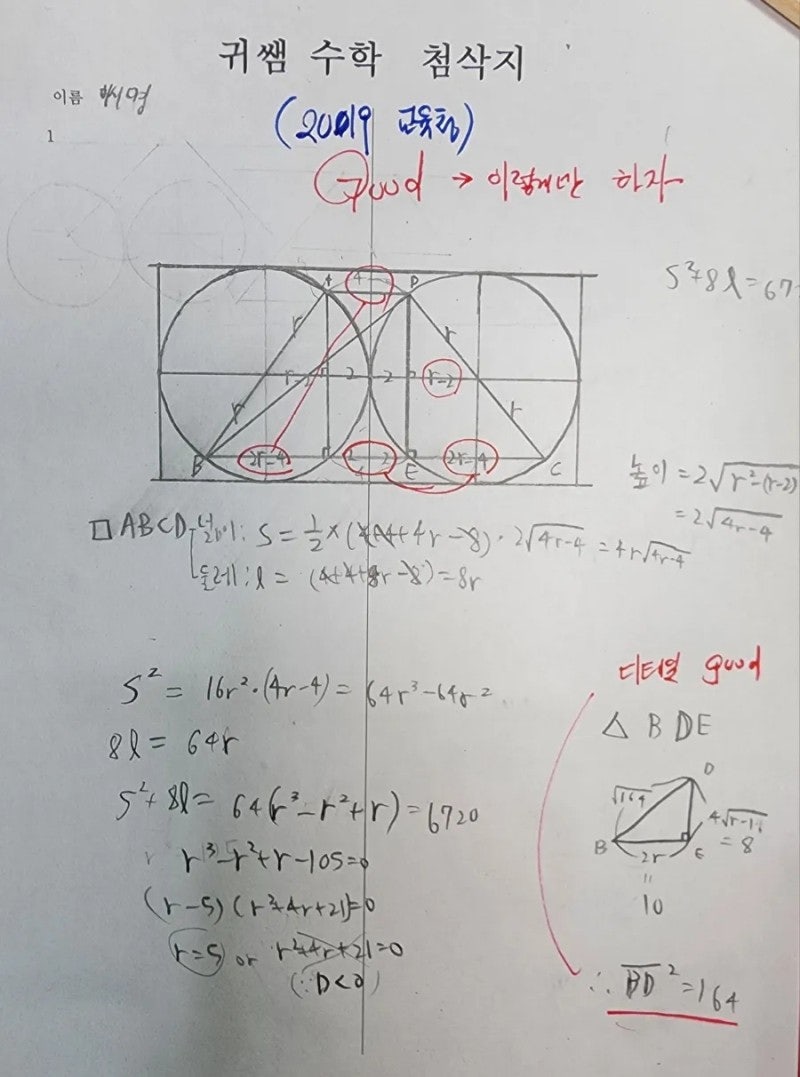 귀쌤 수학 첨삭지
이름
1
(2019 교육청)
Good → 이렇게만 하자
S²+8l=67
A 4 D
r r
r-2 2 2 r-2
r r
B 2r-4 2 2 E 2r-4 C
4
높이 = 2√r²-(r-2)
= 2√4r-4
□ABCD 넓이: S = 1/2 × (4+4+4r-8) · 2√4r-4 = 4r√4r-4
둘레: l = (4+4+8r-8) = 8r
S² = 16r²·(4r-4) = 64r³-64r²
8l = 64r
S²+8l = 64(r³-r²+r) = 6720
r³-r²+r-105=0
(r-5)(r²+4r+21)=0
r=5 or r²+4r+21=0
(∵D<0)
디테일 good
△BDE
D
√164
4√r-1
= 8
B 2r E
"
10
∴ BD² = 164